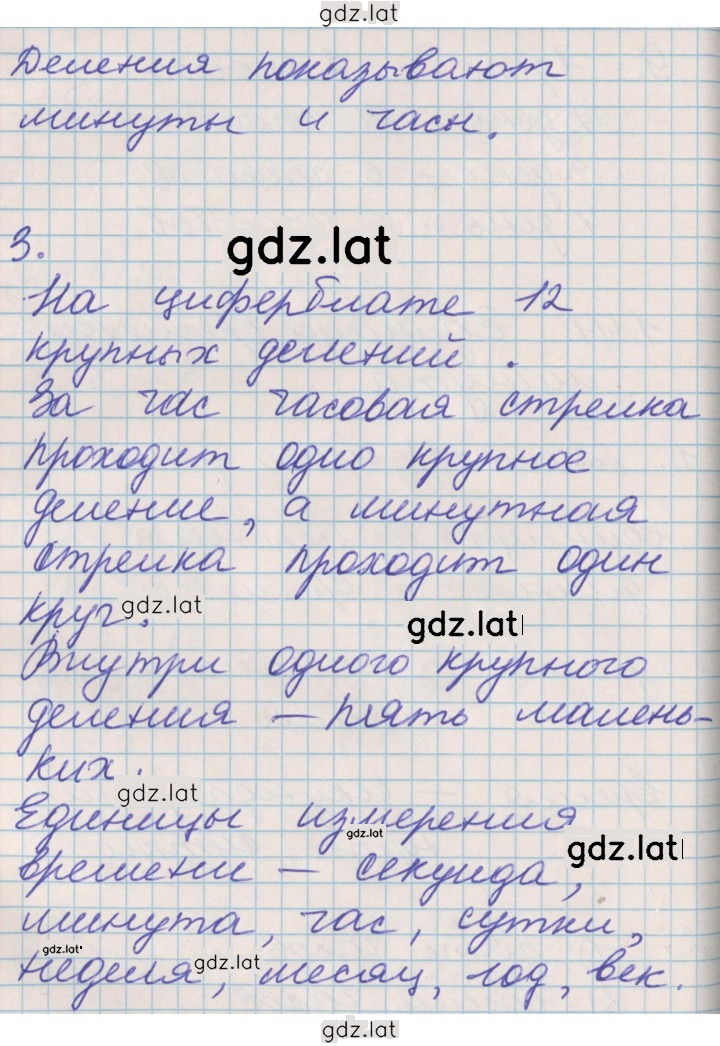 gdz.lat
Деления показывают
минуты и часы.
3.
gdz.lat
На циферблате 12
крупных делений.
За час часовая стрелка
проходит одно крупное
деление, а минутная
стрелка проходит один
круг.
gdz.lat
gdz.lat
Внутри одного крупного
деления — пять малень-
ких.
gdz.lat
Единицы измерения
gdz.lat
времени — секунда,
gdz.lat
минута, час, сутки,
gdz.lat
неделя, месяц, год, век.
gdz.lat
gdz.lat